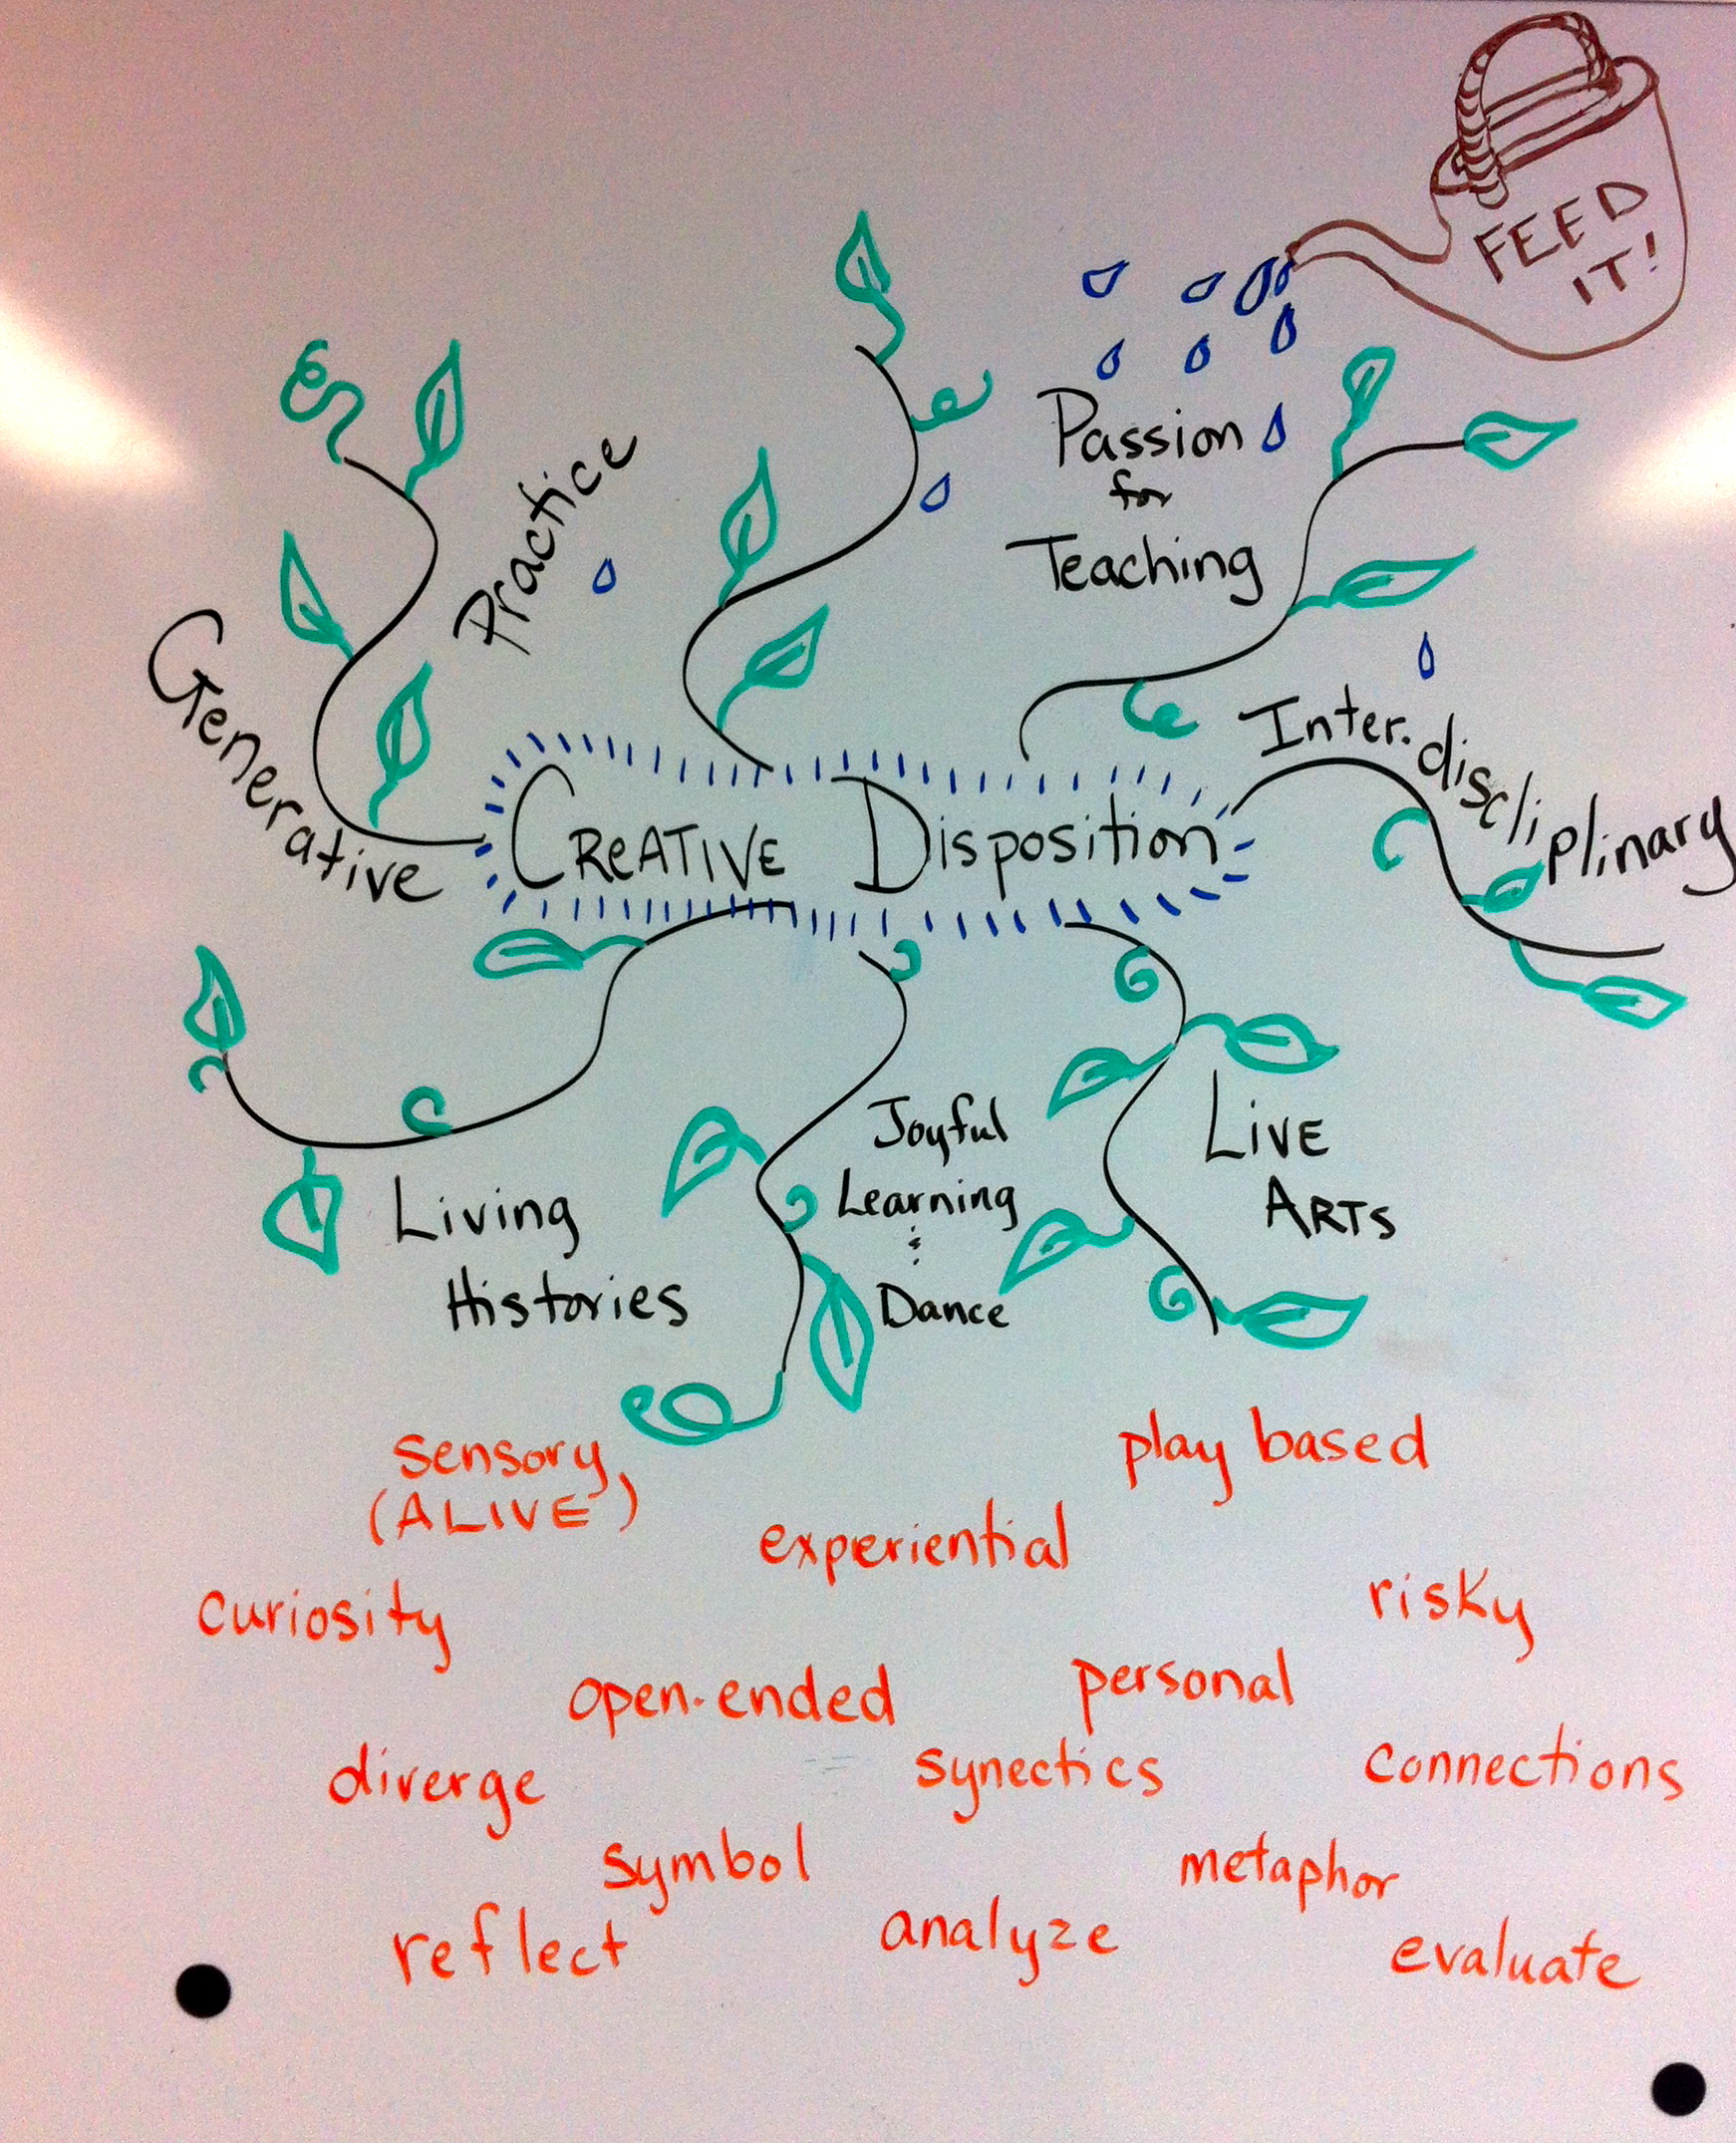 FEED
IT!
Generative
Practice
Passion
for
Teaching
Inter.discliplinary
CREATIVE DISPOSITION
Living
Histories
Joyful
Learning
&
Dance
LIVE
ARTS
sensory
(ALIVE)
play based
experiential
curiosity
risky
open-ended
personal
diverge
synectics
connections
symbol
metaphor
reflect
analyze
evaluate